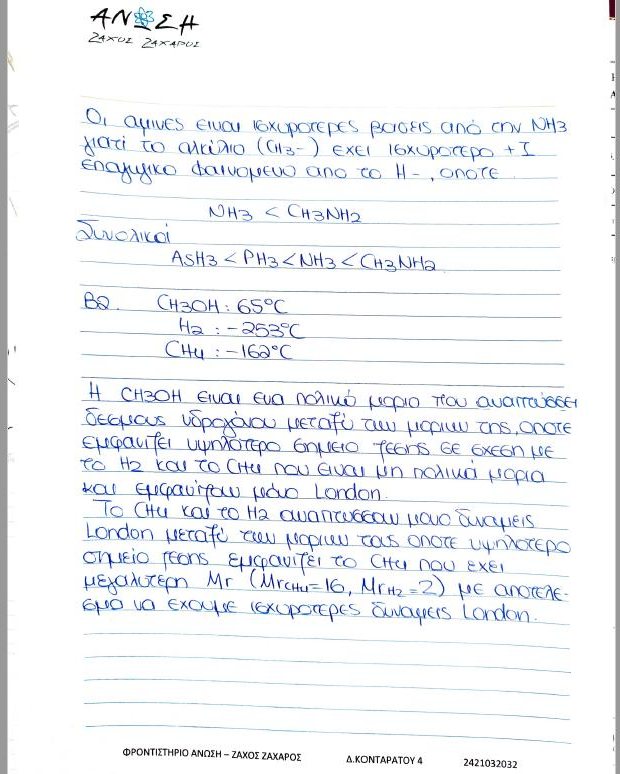 ΑΝΩΣΗ
ΖΑΧΟΣ ΖΑΧΑΡΟΣ
Οι αμινες ειναι ισχυροτερες βασεις από την NH3
γιατί το αλκύλιο (CH3-) έχει ισχυρότερο +I
επαγωγικο φαινομενο απο το H-, οποτε
NH3 < CH3NH2
Συνολικοί
AsH3 < PH3 < NH3 < CH3NH2
Β2. CH3OH : 65°C
H2 : -253°C
CH4 : -162°C
Η CH3OH ειναι ενα πολικό μοριο που αναπτύσσει
δεσμους υδρογόνου μεταξύ των μοριων της, οποτε
εμφανίζει υψηλότερο σημειο ζεσης σε σχεση με
το H2 και το CH4 που ειναι μη πολικά μορια
και εμφανίζουν μόνο London.
Το CH4 και το H2 αναπτυσσουν μονο δυναμεις
London μεταξύ των μοριων τους οποτε υψηλοτερο
σημείο ζεσης εμφανιζει το CH4 που εχει
μεγαλυτερη Mr (MrCH4=16, MrH2=2) με αποτελε-
σμα να εχουμε ισχυροτερες δυναμεις London.
ΦΡΟΝΤΙΣΤΗΡΙΟ ΑΝΩΣΗ – ΖΑΧΟΣ ΖΑΧΑΡΟΣ Δ.ΚΟΝΤΑΡΑΤΟΥ 4 2421032032